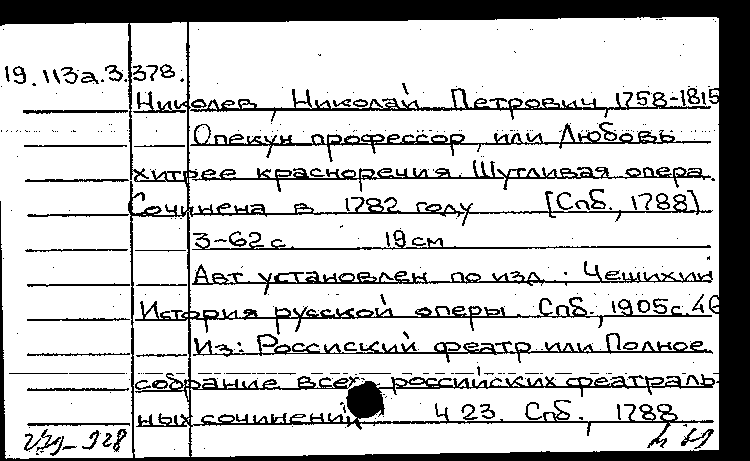 19.113а.3.378.
Николев, Николай Петрович, 1758-1815
Опекун профессор, или Любовь
хитрее красноречия. Шутливая опера.
Сочинена в 1782 году [Спб., 1788]
3-62 с. 19 см
Авт установлен по изд.: Чешихин
История русской оперы. Спб., 1905 с. 46
Из: Россиский феатр или Полное
собрание всех российских феатраль-
ных сочинений Ч 23. Спб., 1788